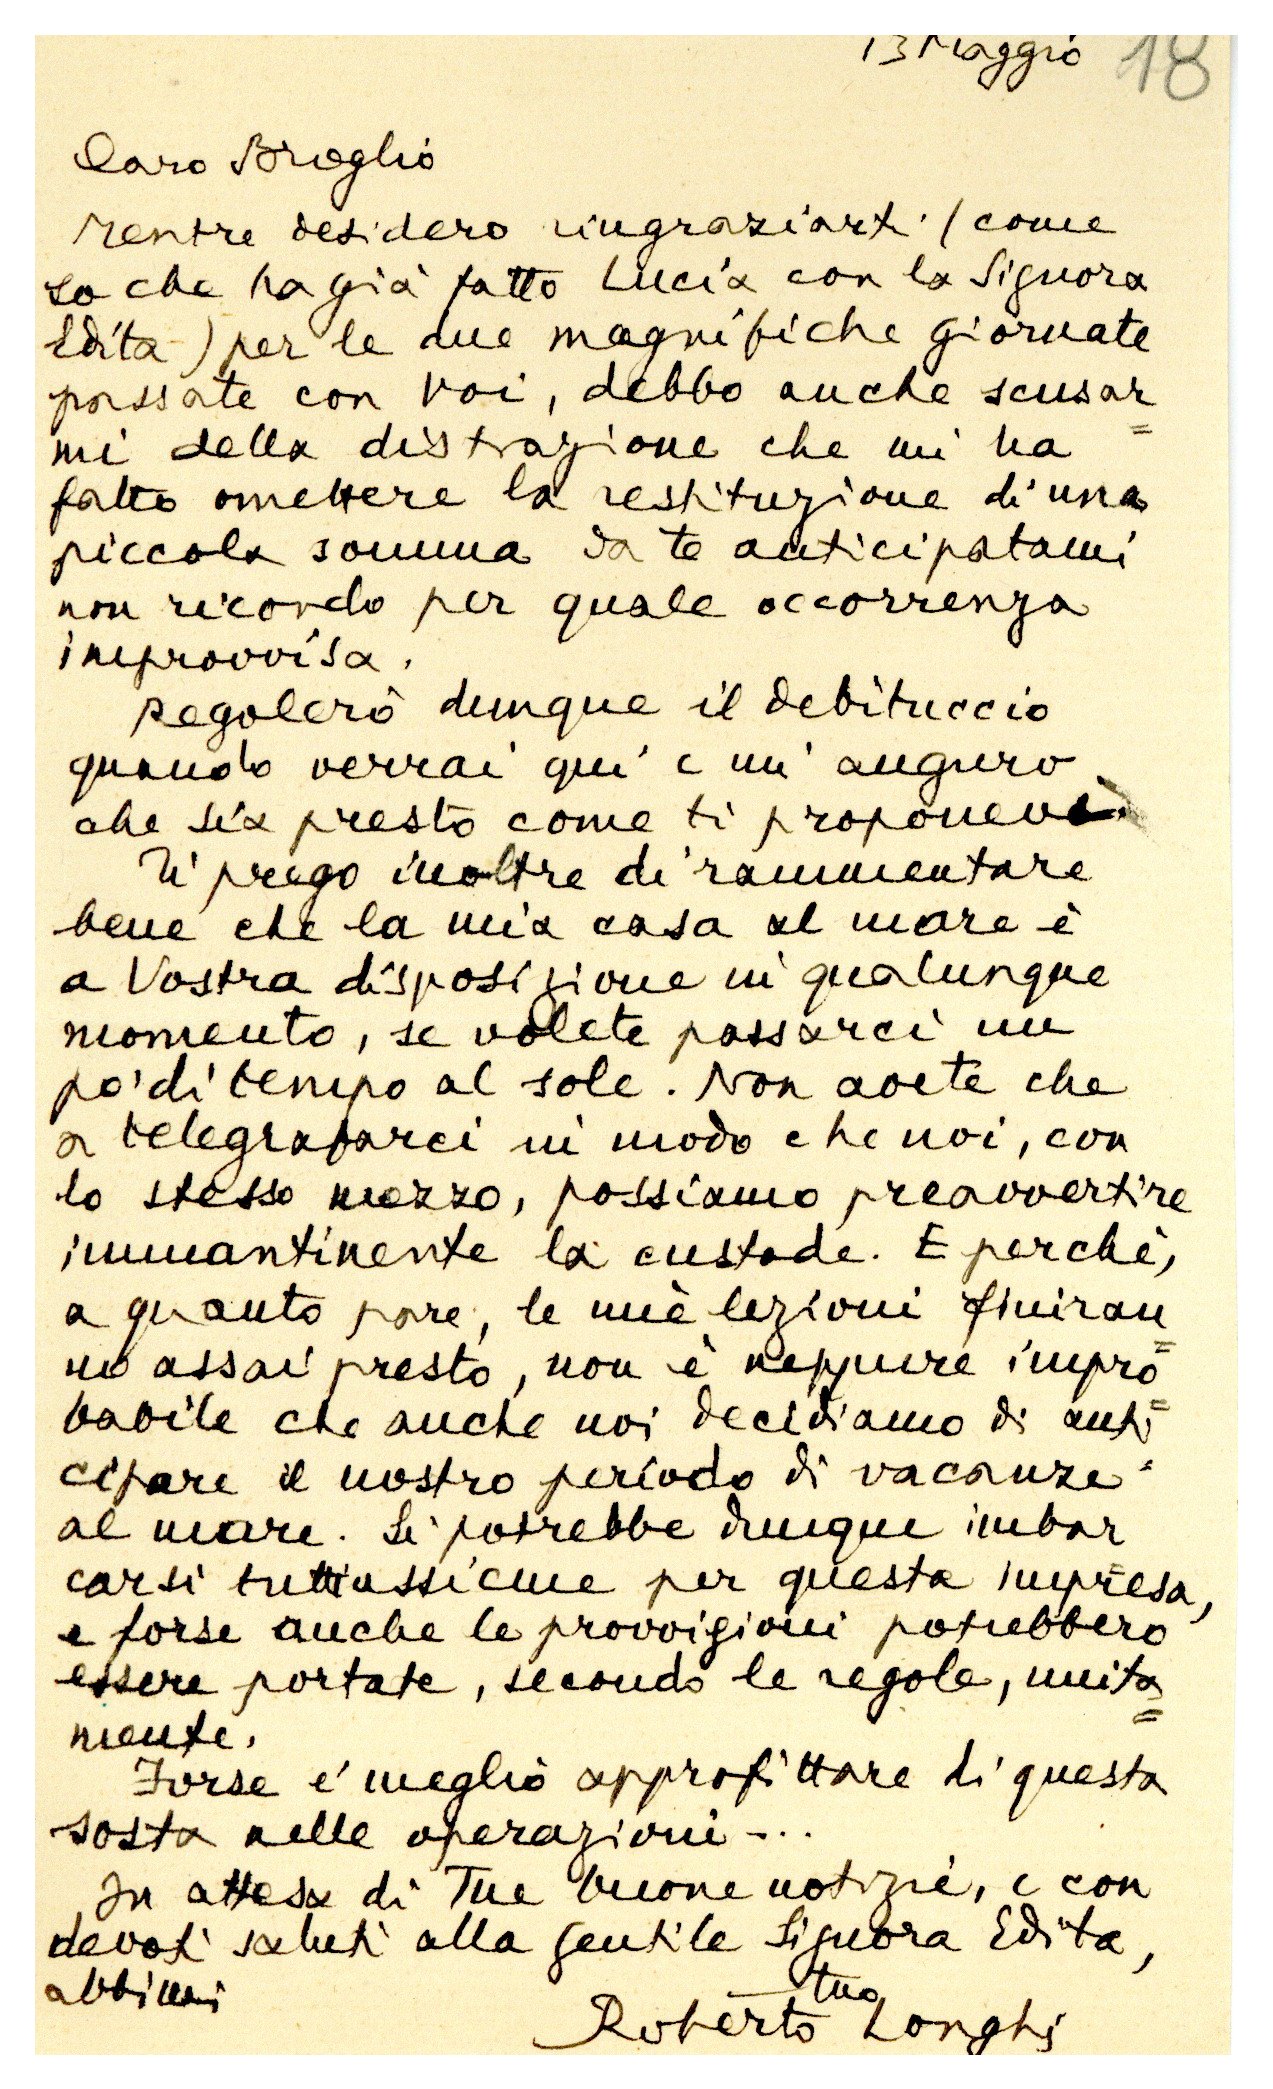 13 Maggio 18
Caro Broglio
Mentre desidero ringraziarti (come
so che ha già fatto Lucia con la Signora
Edita) per le due magnifiche giornate
passate con Voi, debbo anche scusar=
mi della distrazione che mi ha
fatto omettere la restituzione di una
piccola somma da te anticipatami
non ricordo per quale occorrenza
improvvisa.
Regolerò dunque il debituccio
quando verrai qui e mi auguro
che sia presto come ti proponevi.
Ti prego inoltre di rammentare
bene che la mia casa al mare è
a Vostra disposizione in qualunque
momento, se volete passarci un
po' di tempo al sole. Non avete che
a telegrafarci in modo che noi, con
lo stesso mezzo, possiamo preavvertire
immantinente la custode. E perchè,
a quanto pare, le mie lezioni finiran=
no assai presto, non è neppure impro=
babile che anche noi decidiamo di anti=
cipare il nostro periodo di vacanze
al mare. Si potrebbe dunque imbar=
carsi tutti assieme per questa impresa,
e forse anche le provvigioni potrebbero
essere portate, secondo le regole, unita=
mente.
Forse è meglio approfittare di questa
sosta nelle operazioni...
In attesa di Tue buone notizie, e con
devoti saluti alla gentile Signora Edita,
abbimi
tuo
Roberto Longhi